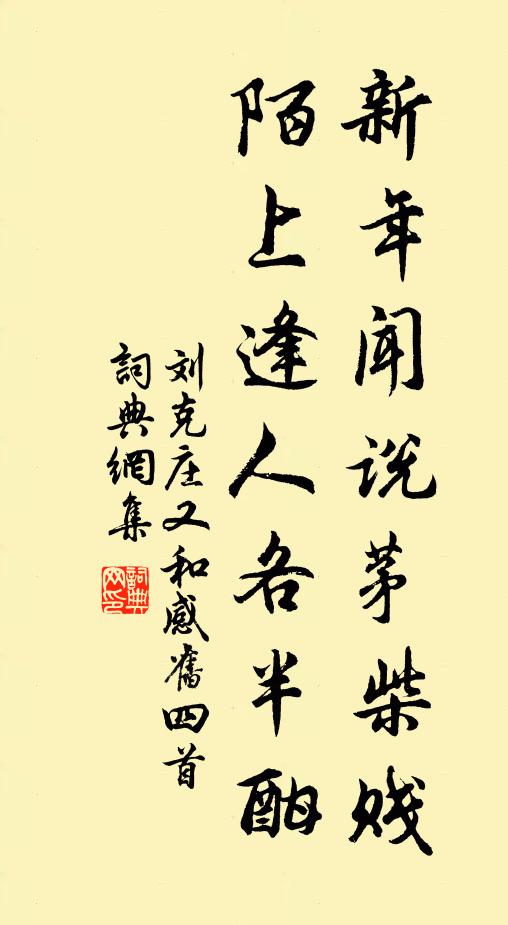 新年闻说茅柴贱
陌上逢人各半酣
刘克庄又和感舊四首
詞典網集
詞典网印